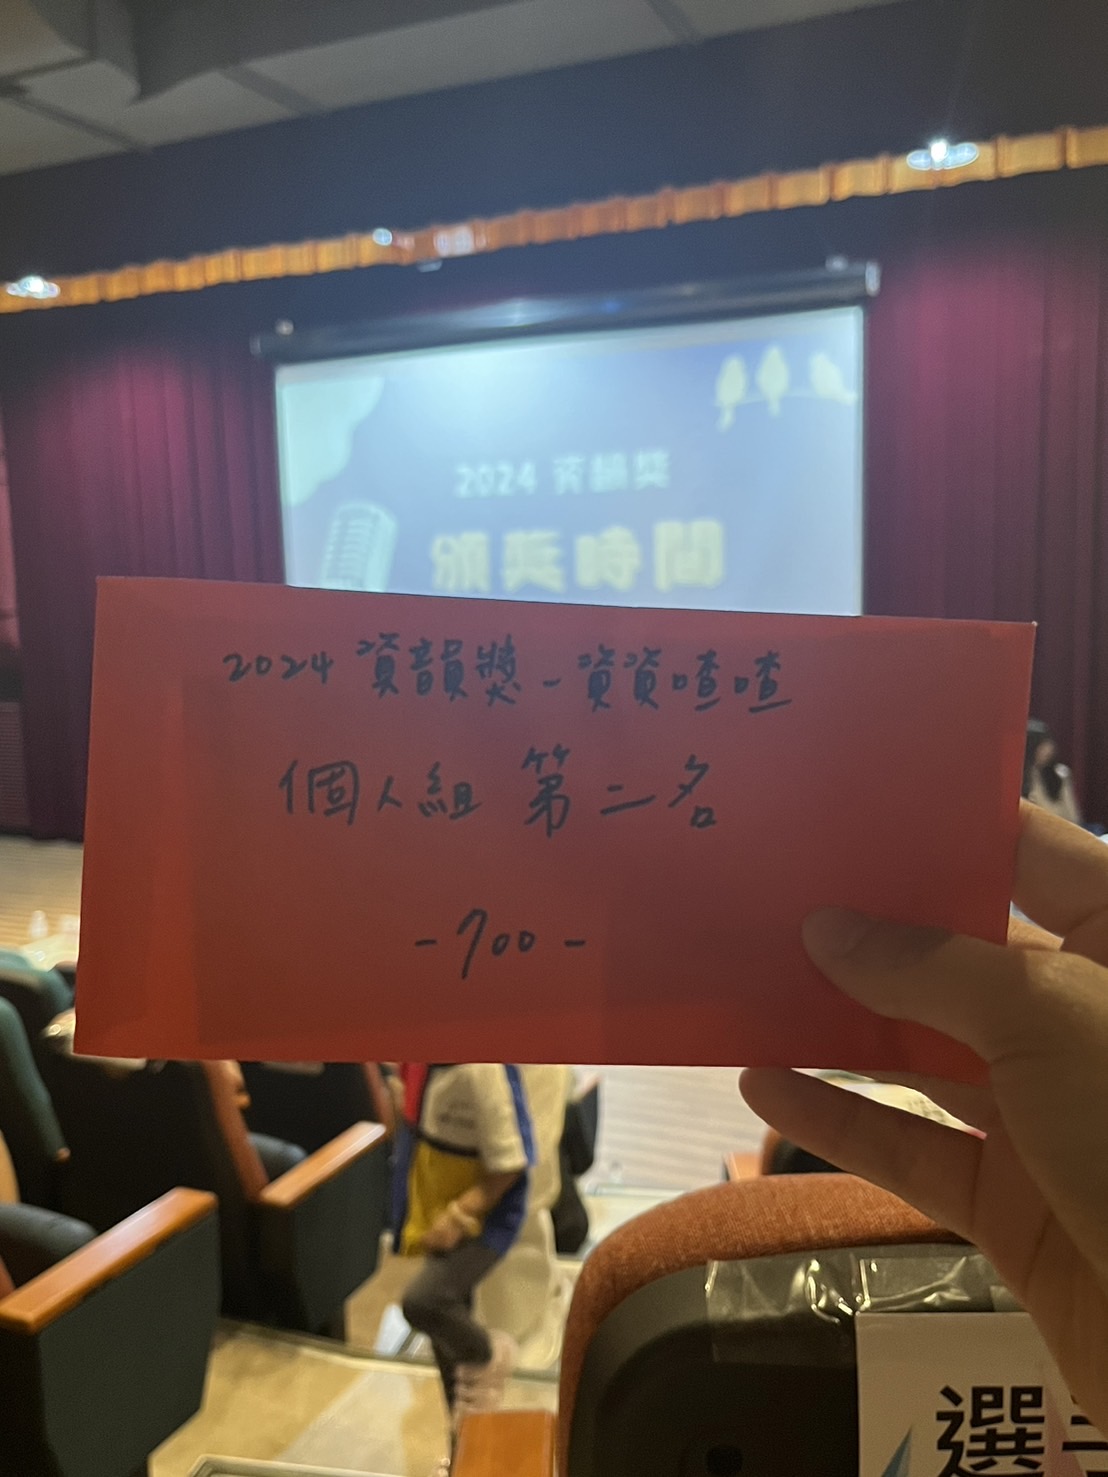 2024 資韻獎
頒獎時間
2024 資韻獎-資資喳喳
個人組 第二名
-700-
選